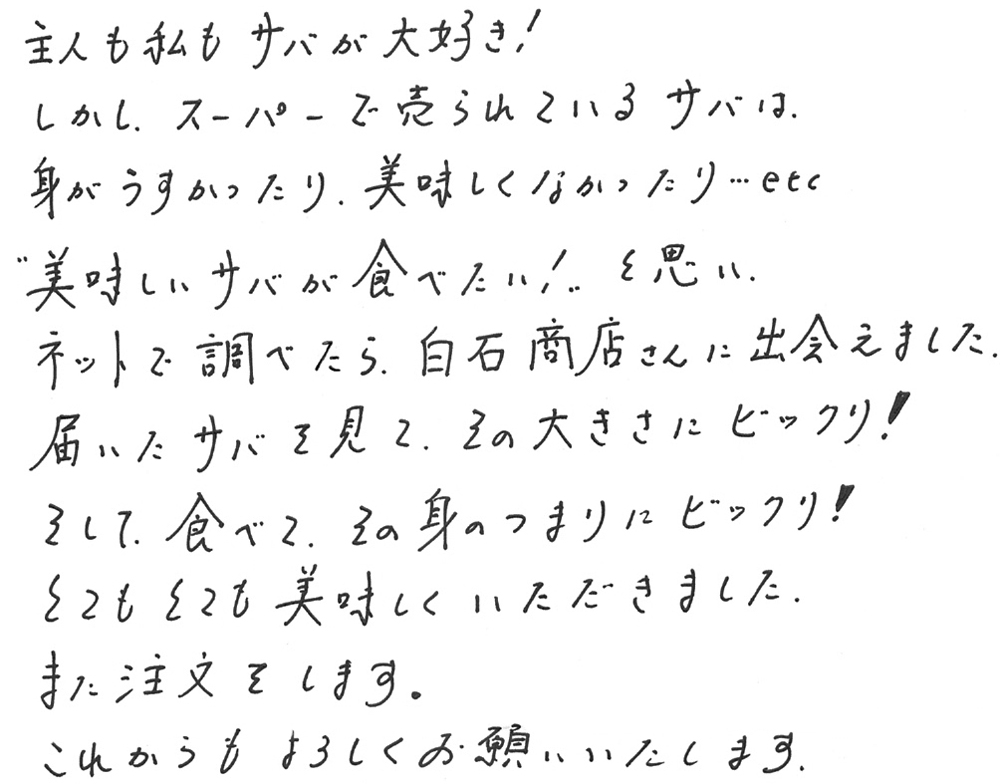 主人も私もサバが大好き!
しかし、スーパーで売られているサバは、
身がうすかったり、美味しくなかったり…etc
"美味しいサバが食べたい!"と思い、
ネットで調べたら、白石商店さんに出会えました。
届いたサバを見て、その大きさにビックリ!
そして、食べて、その身のつまりにビックリ!
とてもとても美味しくいただきました。
また注文をします。
これからもよろしくお願いいたします。